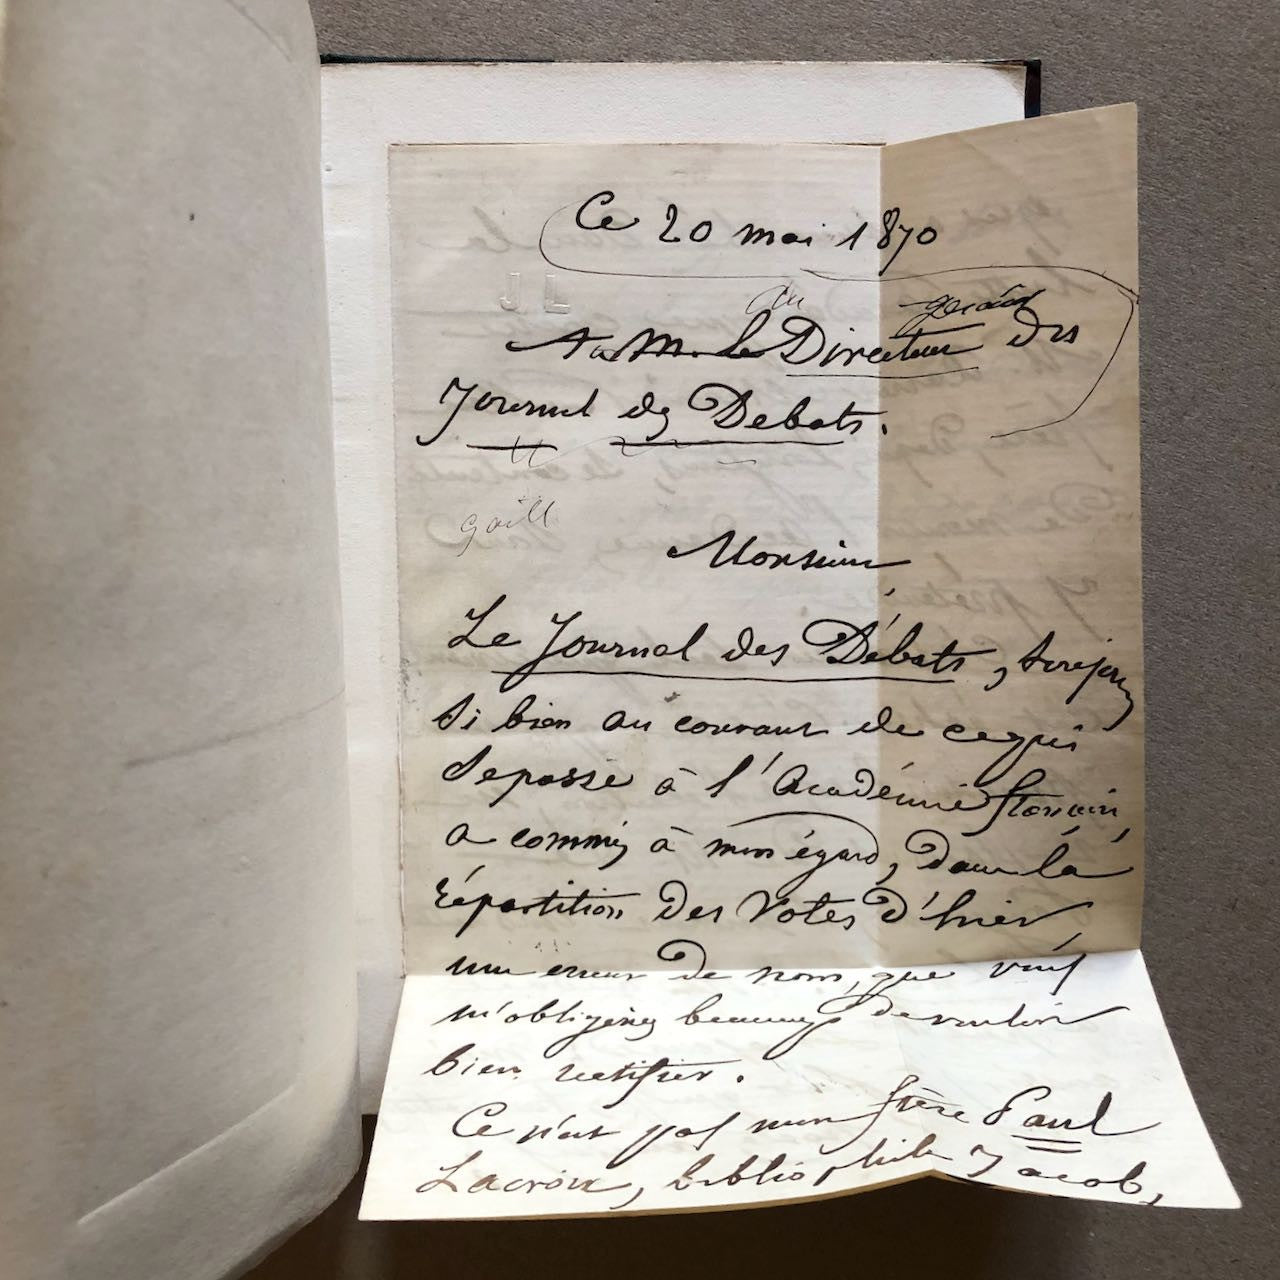 Ce 20 mai 1870
J L
au gérant
A M. le Directeur des
Journal des Débats.
Monsieur,
Le Journal des Débats, toujours
si bien au courant de ce qui
se passe à l'Académie française
a commis à mon égard, dans la
répartition des votes d'hier,
une erreur de nom, que vous
m'obligeriez beaucoup de vouloir
bien rectifier.
Ce n'est pas mon frère Paul
Lacroix, bibliophile Jacob,